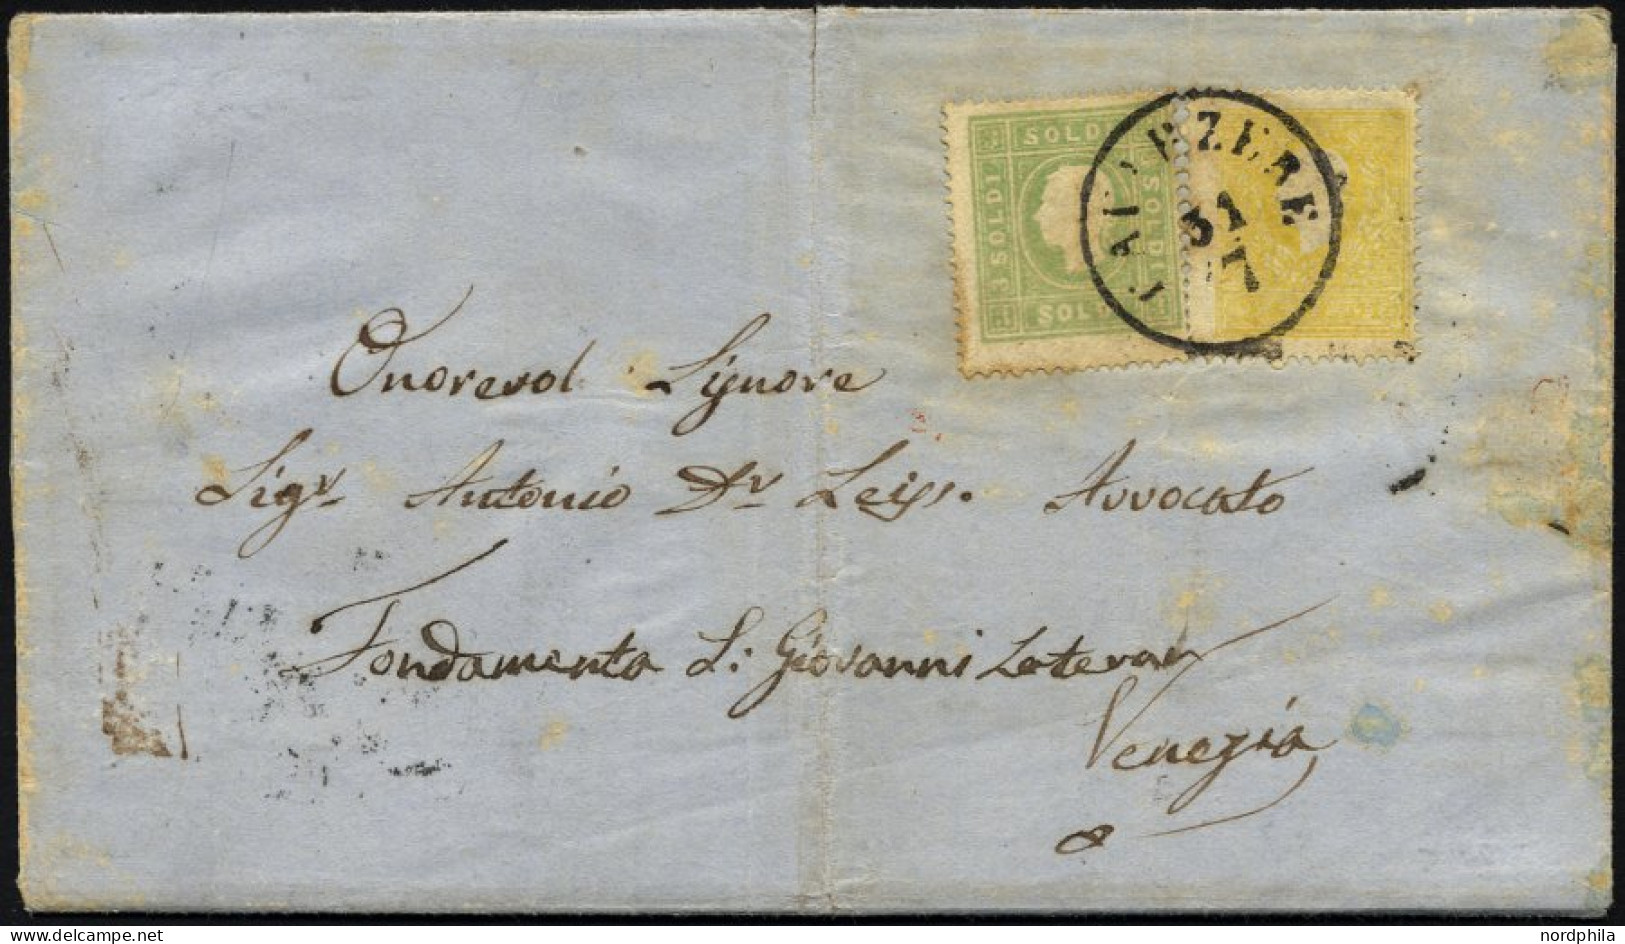 SOLDI
3 SOLDI
SOLDI
SOLDI
CAVARZERE
31
7
Onorevol Signore
Sigr Antonio Dr Leiss. Avvocato
Fondamenta S: Giovanni Lateran
Venezia
nordphila